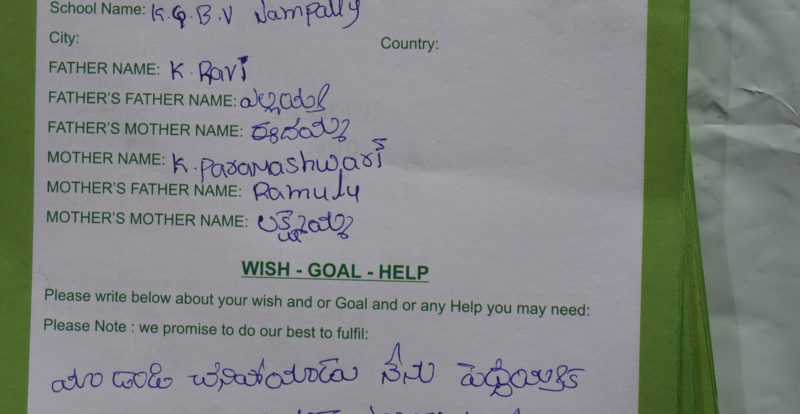 School Name: K.G.B.V Nampally
City: Country:
FATHER NAME: K. Ravi
FATHER'S FATHER NAME: ఎల్లయ్య
FATHER'S MOTHER NAME: ఈదమ్మ
MOTHER NAME: K. Paramashwari
MOTHER'S FATHER NAME: Ramulu
MOTHER'S MOTHER NAME: లక్ష్మమ్మ
WISH - GOAL - HELP
Please write below about your wish and or Goal and or any Help you may need:
Please Note : we promise to do our best to fulfil:
మా డాడి చనిపోయాడు నేను పెద్దయ్యిక